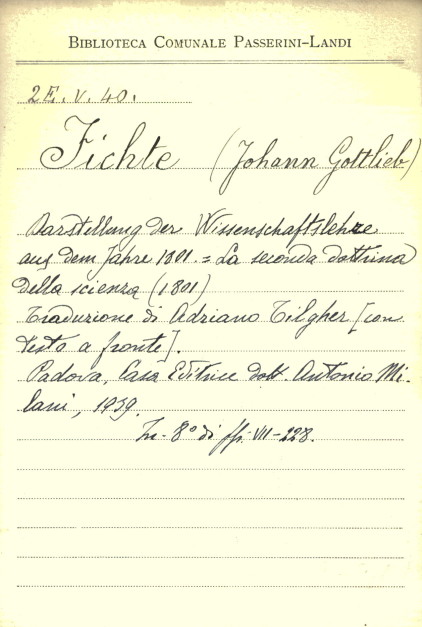 BIBLIOTECA COMUNALE PASSERINI-LANDI
2E. V. 40.
Fichte (Johann Gottlieb)
Darstellung der Wissenschaftslehre
aus dem Jahre 1801. = La seconda dottrina
della scienza (1801)
Traduzione di Adriano Tilgher [con
testo a fronte].
Padova, Casa Editrice dott. Antonio Mi-
lani, 1939.
In-8° di pp. VII-228.